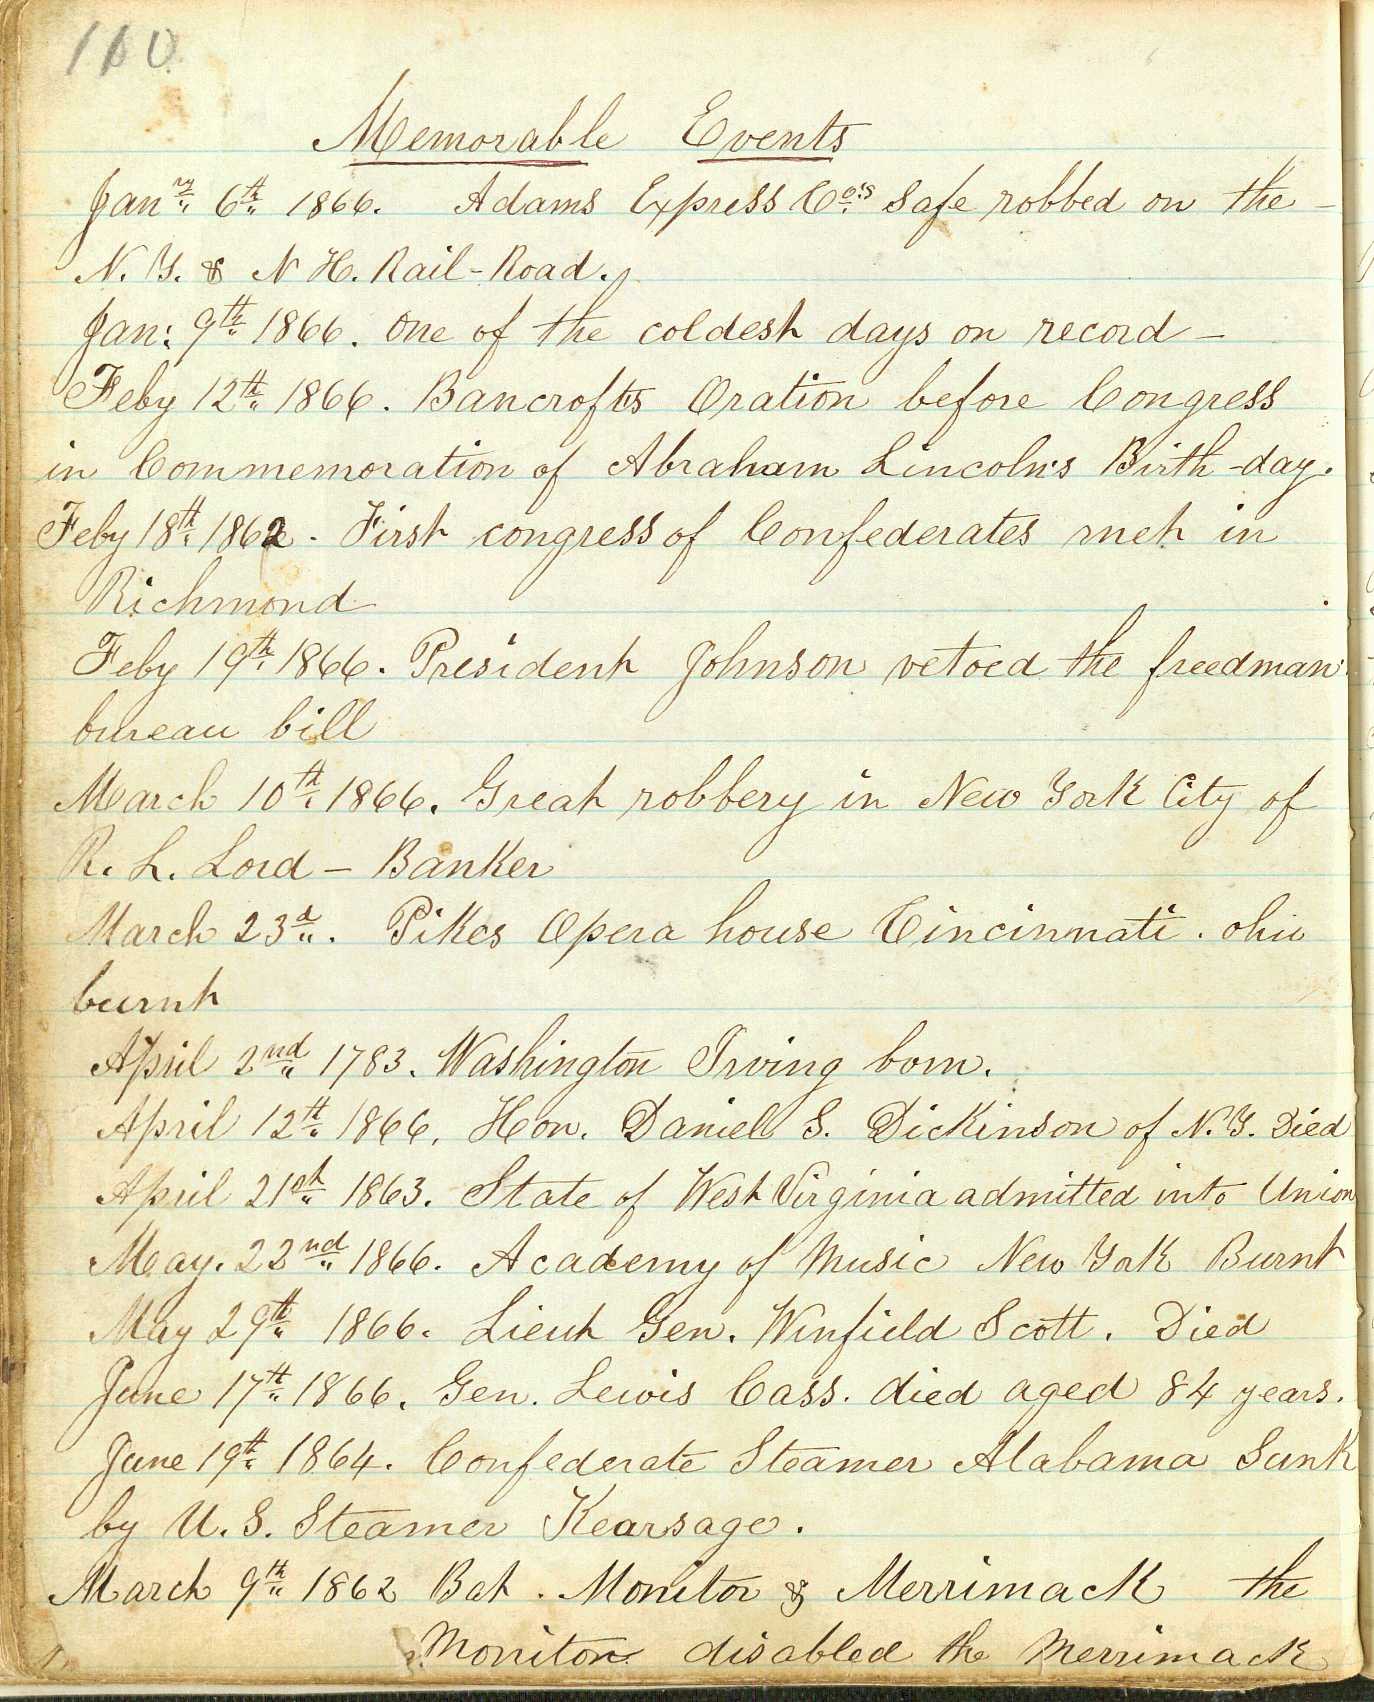 110
Memorable Events
Jan^ry 6^th 1866. Adams Express Co^'s Safe robbed on the -
N. Y. & N H. Rail-Road.
Jan: 9^th 1866. One of the coldest days on record -
Feby 12^th 1866. Bancrofts Oration before Congress
in Commemoration of Abraham Lincoln's Birth-day.
Feby 18^th 1862. First congress of Confederates met in
Richmond
Feby 19^th 1866. President Johnson vetoed the freedman
bureau bill
March 10^th 1866. Great robbery in New York City of
R. L. Lord - Banker
March 23^d. Pikes Opera house Cincinnati. ohio
burnt
April 2^nd 1783. Washington Irving born.
April 12^th 1866. Hon. Daniel S. Dickinson of N.Y. Died
April 21^st 1863. State of West Virginia admitted into Union
May. 22^nd 1866. Academy of Music New York Burnt
May 29^th 1866. Lieut Gen. Winfield Scott. Died
June 17^th 1866. Gen. Lewis Cass. died aged 84 years.
June 19^th 1864. Confederate Steamer Alabama Sunk
by U. S. Steamer Kearsage.
March 9^th 1862 Bat. Monitor & Merrimack the
Monitor disabled the Merrimack